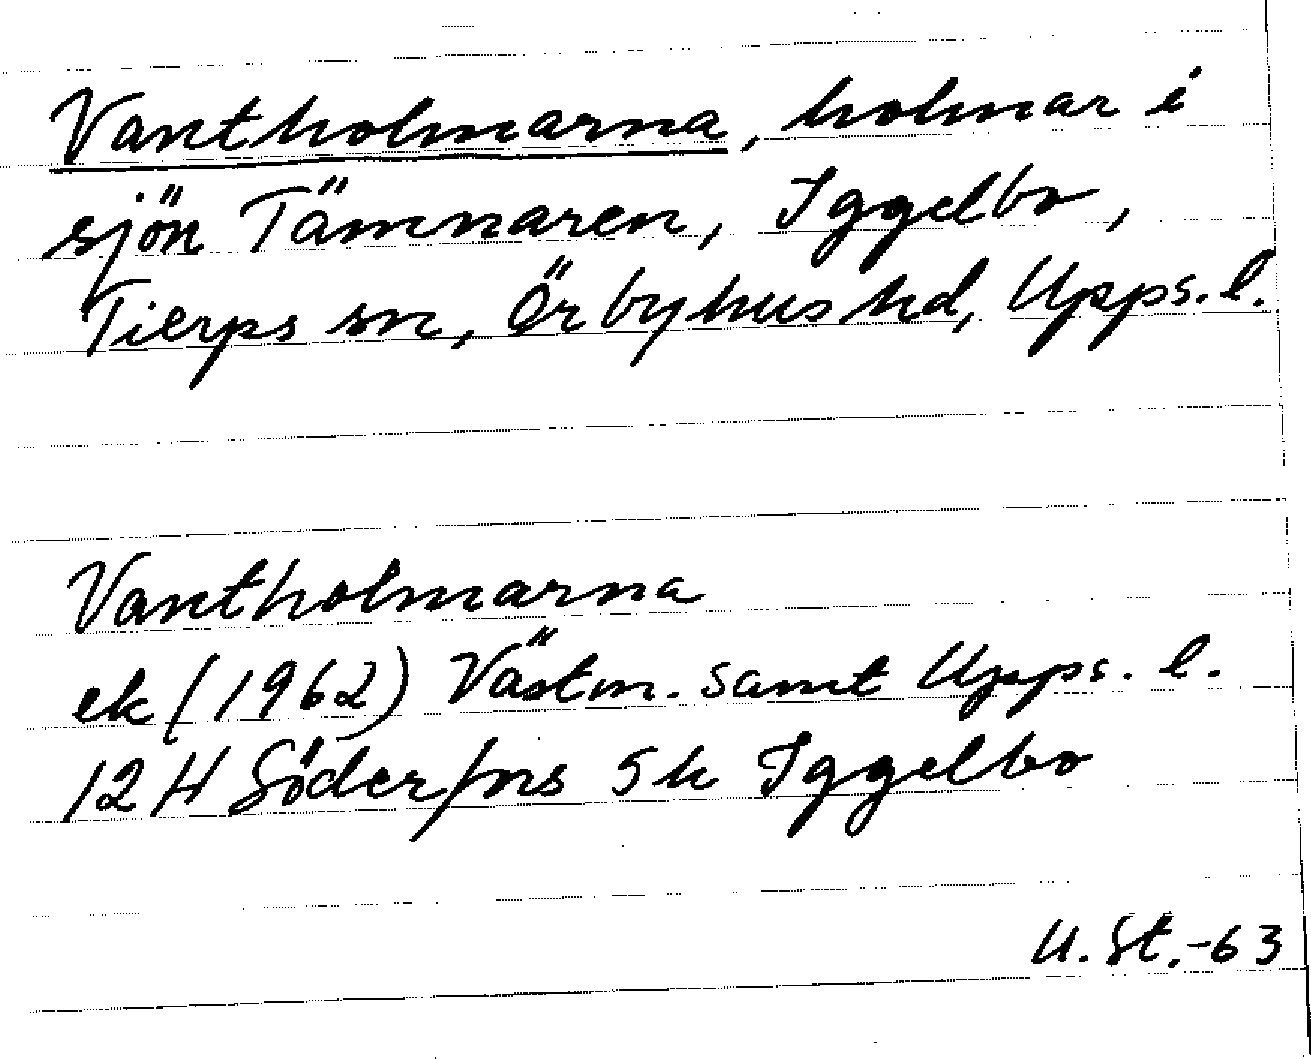 Vantholmarna, holmar i
sjön Tämnaren, Iggelbo,
Tierps sn, Örbyhus hd, Upps. l.
Vantholmarna
ek (1962) Västm. samt Upps. l.
12 H Söderfors 5 h Iggelbo
U. St. -63